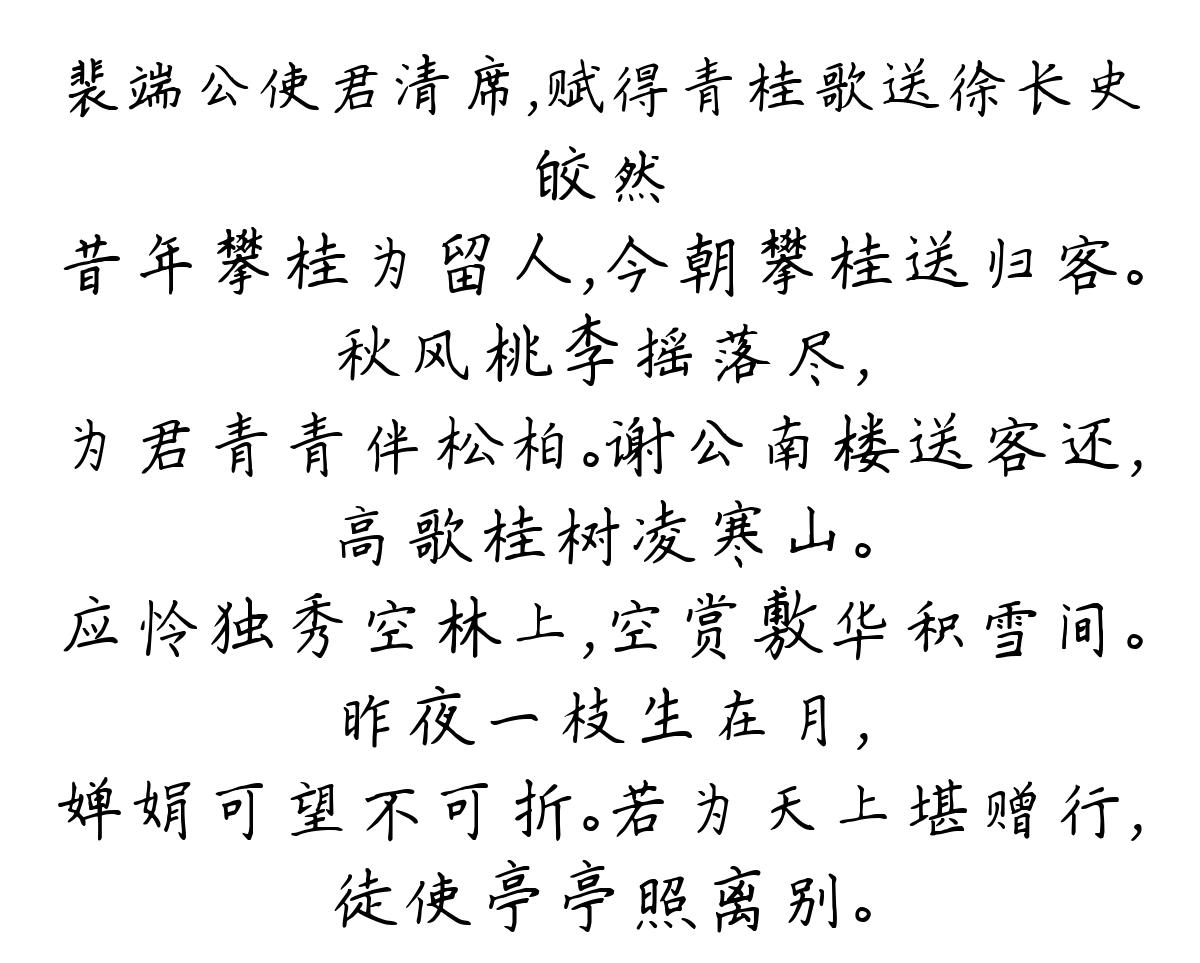 裴端公使君清席,赋得青桂歌送徐长史
皎然
昔年攀桂为留人,今朝攀桂送归客。
秋风桃李摇落尽,
为君青青伴松柏。谢公南楼送客还,
高歌桂树凌寒山。
应怜独秀空林上,空赏敷华积雪间。
昨夜一枝生在月,
婵娟可望不可折。若为天上堪赠行,
徒使亭亭照离别。